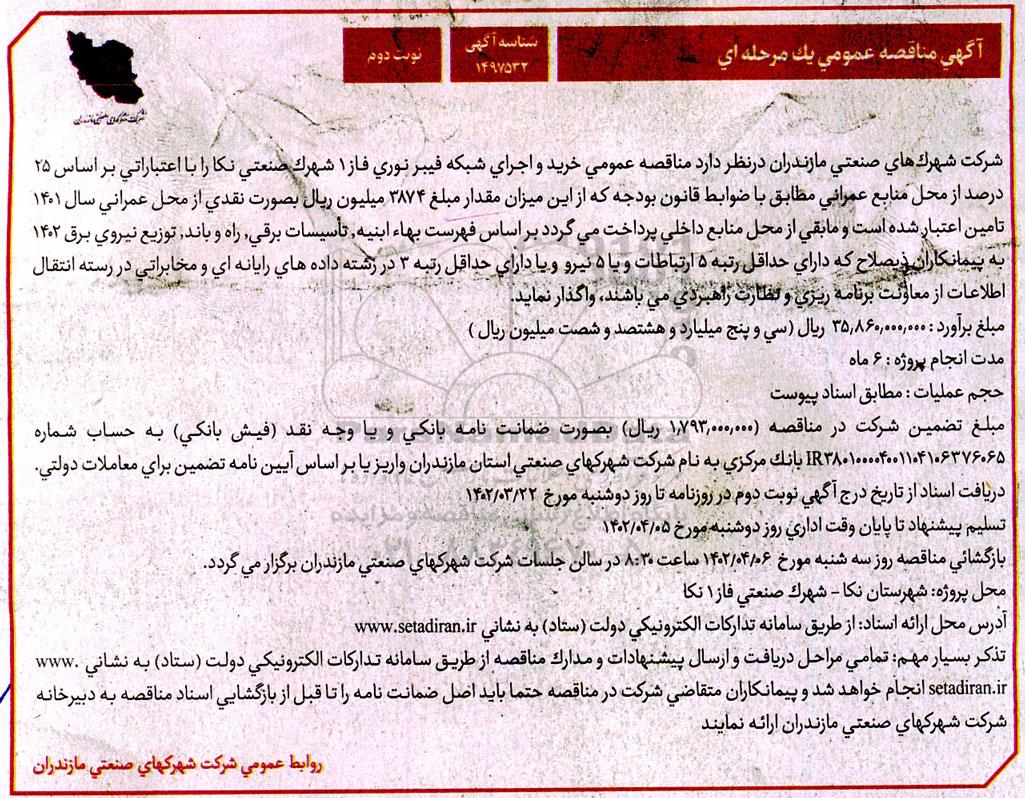 آگهي مناقصه عمومي يك مرحله اي
شناسه آگهي
۱۴۹۷۵۳۲
نوبت دوم
شركت شهركهاي صنعتي مازندران
شركت شهرك‌هاي صنعتي مازندران درنظر دارد مناقصه عمومي خريد و اجراي شبكه فيبر نوري فاز ۱ شهرك صنعتي نكا را با اعتباراتي بر اساس ۲۵
درصد از محل منابع عمراني مطابق با ضوابط قانون بودجه كه از اين ميزان مقدار مبلغ ۳۸۷۴ ميليون ريال بصورت نقدي از محل عمراني سال ۱۴۰۱
تامين اعتبار شده است و مابقي از محل منابع داخلي پرداخت مي گردد بر اساس فهرست بهاء ابنيه, تأسيسات برقي, راه و باند, توزيع نيروي برق ۱۴۰۲
به پيمانكاران ذيصلاح كه داراي حداقل رتبه ۵ ارتباطات و يا ۵ نيرو و يا داراي حداقل رتبه ۳ در رشته داده هاي رايانه اي و مخابراتي در رسته انتقال
اطلاعات از معاونت برنامه ريزي و نظارت راهبردي مي باشند، واگذار نمايد.
مبلغ برآورد : ۳۵,۸۶۰,۰۰۰,۰۰۰ ريال (سي و پنج ميليارد و هشتصد و شصت ميليون ريال )
مدت انجام پروژه : ۶ ماه
حجم عمليات : مطابق اسناد پيوست
مبلغ تضمين شركت در مناقصه (۱,۷۹۳,۰۰۰,۰۰۰ ريال) بصورت ضمانت نامه بانكي و يا وجه نقد (فيش بانكي) به حساب شماره
IR۳۸۰۱۰۰۰۰۴۰۰۱۱۰۴۱۰۶۳۷۶۰۶۵ بانك مركزي به نام شركت شهركهاي صنعتي استان مازندران واريز يا بر اساس آيين نامه تضمين براي معاملات دولتي.
دريافت اسناد از تاريخ درج آگهي نوبت دوم در روزنامه تا روز دوشنبه مورخ ۱۴۰۲/۰۳/۲۲
تسليم پيشنهاد تا پايان وقت اداري روز دوشنبه مورخ ۱۴۰۲/۰۴/۰۵
بازگشائي مناقصه روز سه شنبه مورخ ۱۴۰۲/۰۴/۰۶ ساعت ۸:۳۰ در سالن جلسات شركت شهركهاي صنعتي مازندران برگزار مي گردد.
محل پروژه: شهرستان نكا - شهرك صنعتي فاز ۱ نكا
آدرس محل ارائه اسناد: از طريق سامانه تداركات الكترونيكي دولت (ستاد) به نشاني www.setadiran.ir
تذكر بسيار مهم: تمامي مراحل دريافت و ارسال پيشنهادات و مدارك مناقصه از طريق سامانه تداركات الكترونيكي دولت (ستاد) به نشاني www.
setadiran.ir انجام خواهد شد و پيمانكاران متقاضي شركت در مناقصه حتما بايد اصل ضمانت نامه را تا قبل از بازگشايي اسناد مناقصه به دبيرخانه
شركت شهركهاي صنعتي مازندران ارائه نمايند
روابط عمومي شركت شهركهاي صنعتي مازندران